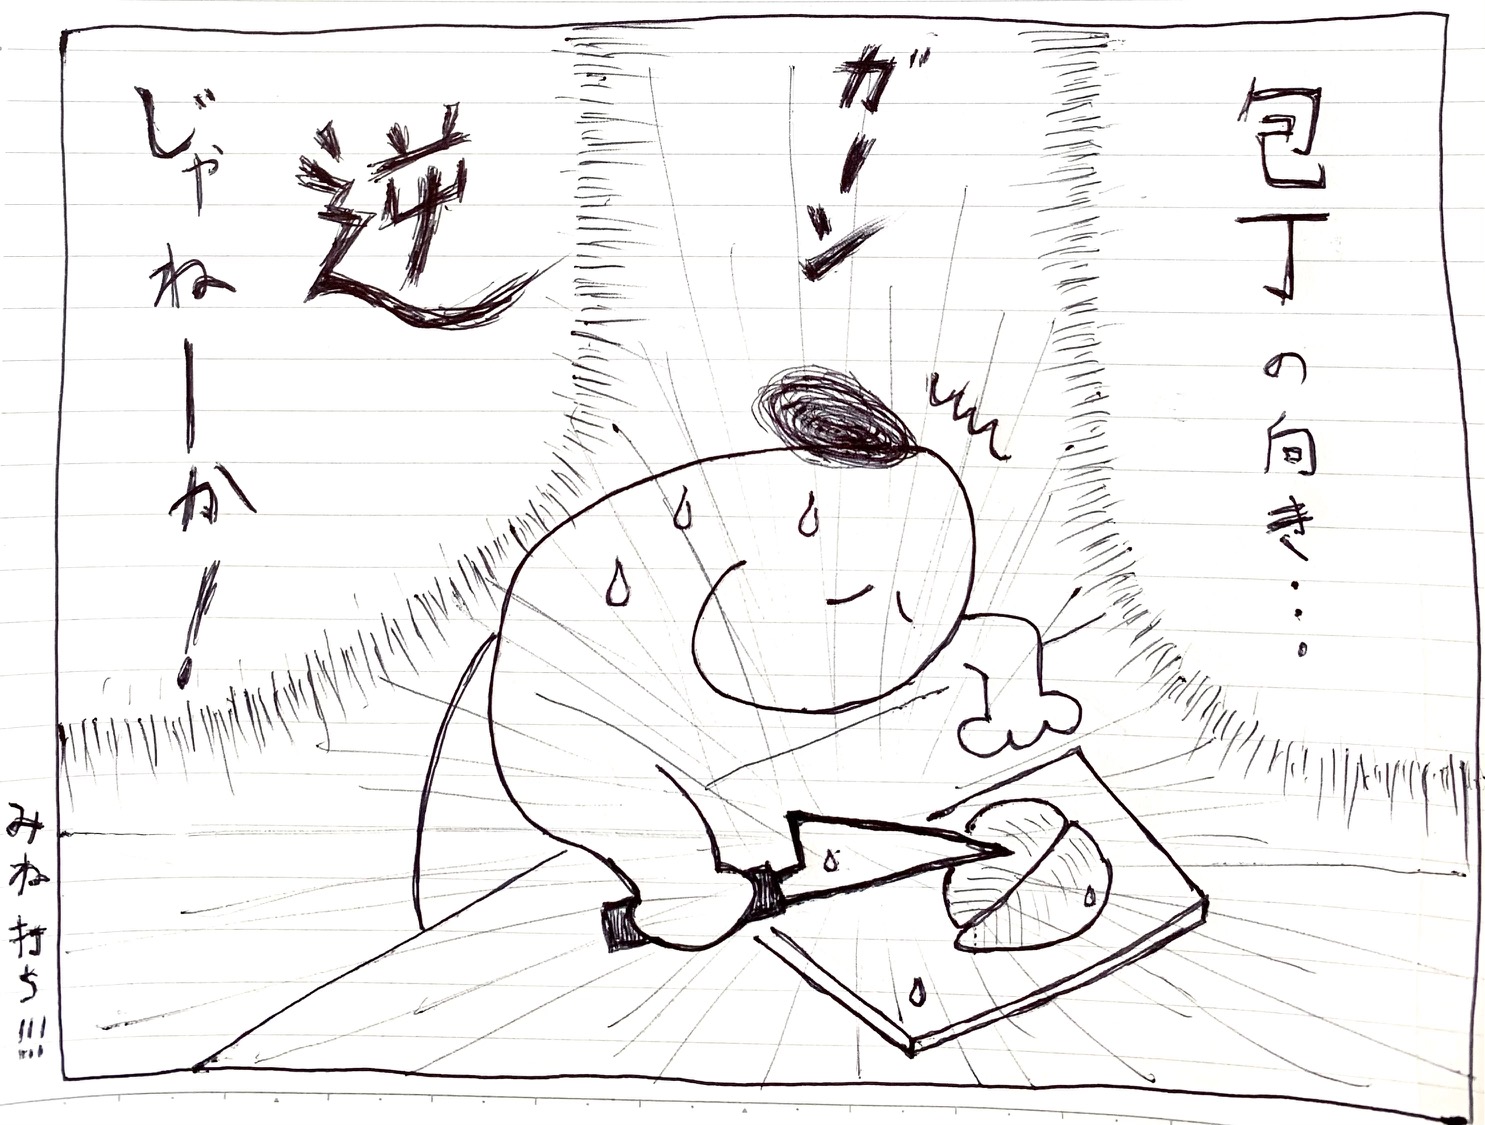 包丁の向き…
ガーン
逆
じゃねーか!
みね打ち!!!